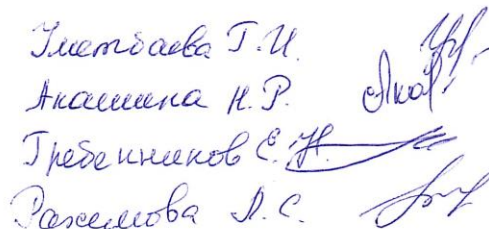 Уметбаева Г.И.
Акашина Н.Р.
Гребенников Е.Н.
Рахимова Л.С.